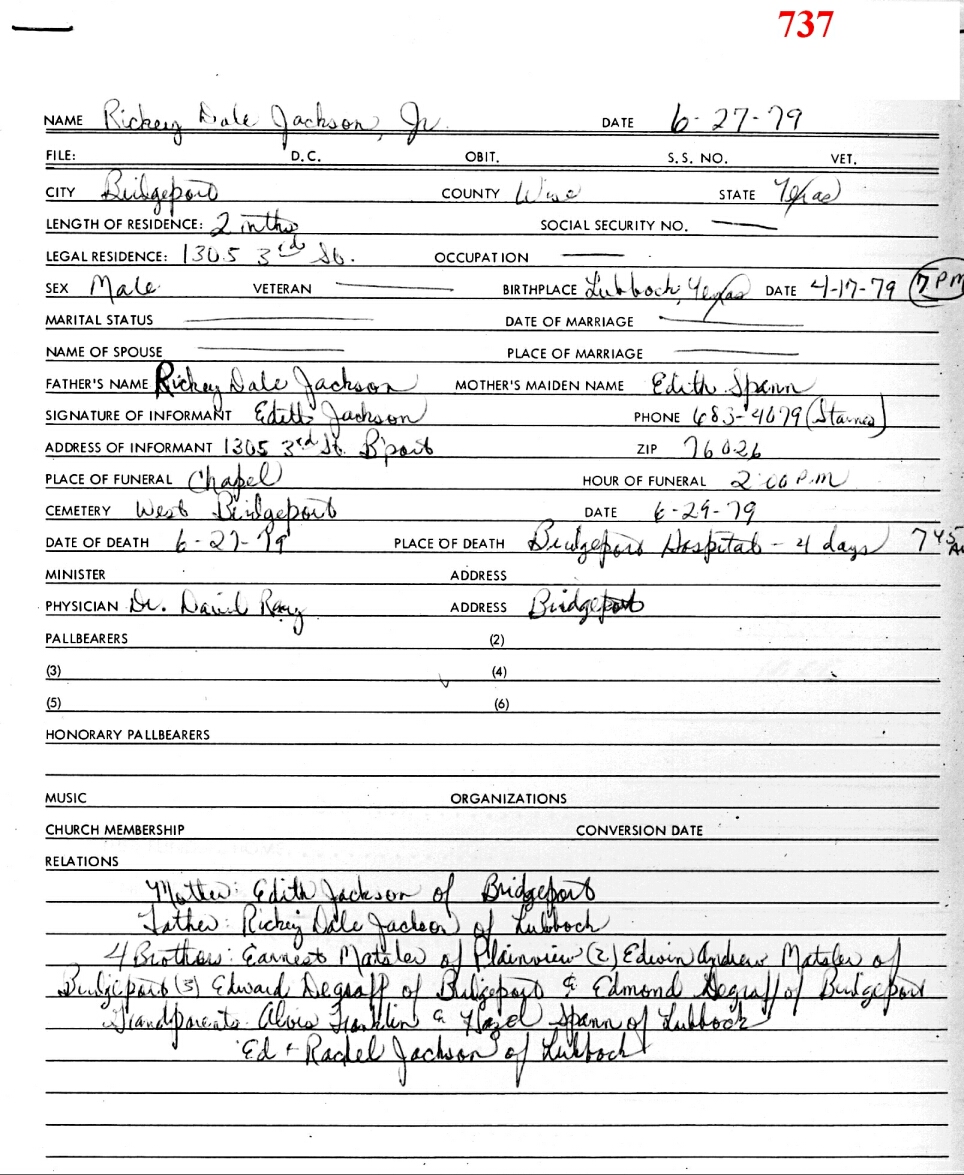 737
NAME Rickey Dale Jackson, Jr. DATE 6-27-79
FILE: D.C. OBIT. S.S. NO. VET.
CITY Bridgeport COUNTY Wise STATE Texas
LENGTH OF RESIDENCE: 2 mths SOCIAL SECURITY NO. —
LEGAL RESIDENCE: 1305 3rd St. OCCUPATION —
SEX Male VETERAN — BIRTHPLACE Lubbock, Texas DATE 4-17-79 7 PM
MARITAL STATUS — DATE OF MARRIAGE —
NAME OF SPOUSE — PLACE OF MARRIAGE —
FATHER'S NAME Rickey Dale Jackson MOTHER'S MAIDEN NAME Edith Spann
SIGNATURE OF INFORMANT Edith Jackson PHONE 683-4079 (Starnes)
ADDRESS OF INFORMANT 1305 3rd St. B'port ZIP 76026
PLACE OF FUNERAL Chapel HOUR OF FUNERAL 2:00 P.M
CEMETERY West Bridgeport DATE 6-29-79
DATE OF DEATH 6-27-79 PLACE OF DEATH Bridgeport Hospital - 4 days 745 A
MINISTER ADDRESS
PHYSICIAN Dr. David Ray ADDRESS Bridgeport
PALLBEARERS (2)
(3) (4)
(5) (6)
HONORARY PALLBEARERS
MUSIC ORGANIZATIONS
CHURCH MEMBERSHIP CONVERSION DATE
RELATIONS
Mother: Edith Jackson of Bridgeport
Father: Rickey Dale Jackson of Lubbock
4 Brothers: Earnest Matsler of Plainview (2) Edwin Andrew Matsler of
Bridgeport (3) Edward Degraff of Bridgeport & Edmond Degraff of Bridgeport
Grandparents. Alvis Franklin & Hazel Spann of Lubbock
Ed + Rachel Jackson of Lubbock